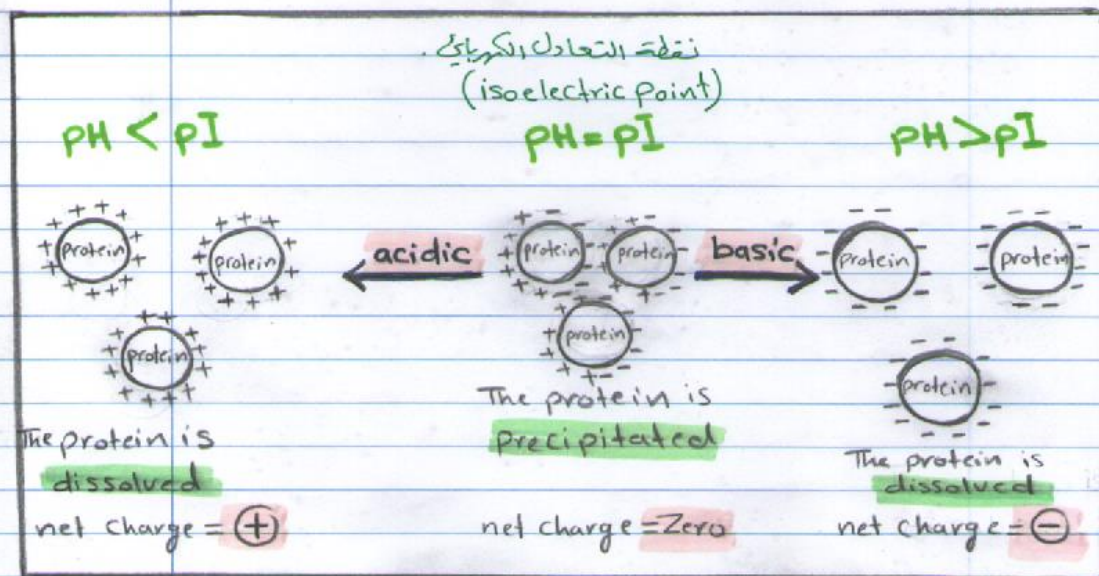 نقطة التعادل الكهربائي.
(isoelectric point)
pH < pI
pH = pI
pH > pI
protein
protein
protein
acidic
protein
protein
protein
basic
protein
protein
protein
The protein is
dissolved
net charge = +
The protein is
precipitated
net charge = Zero
The protein is
dissolved
net charge = -